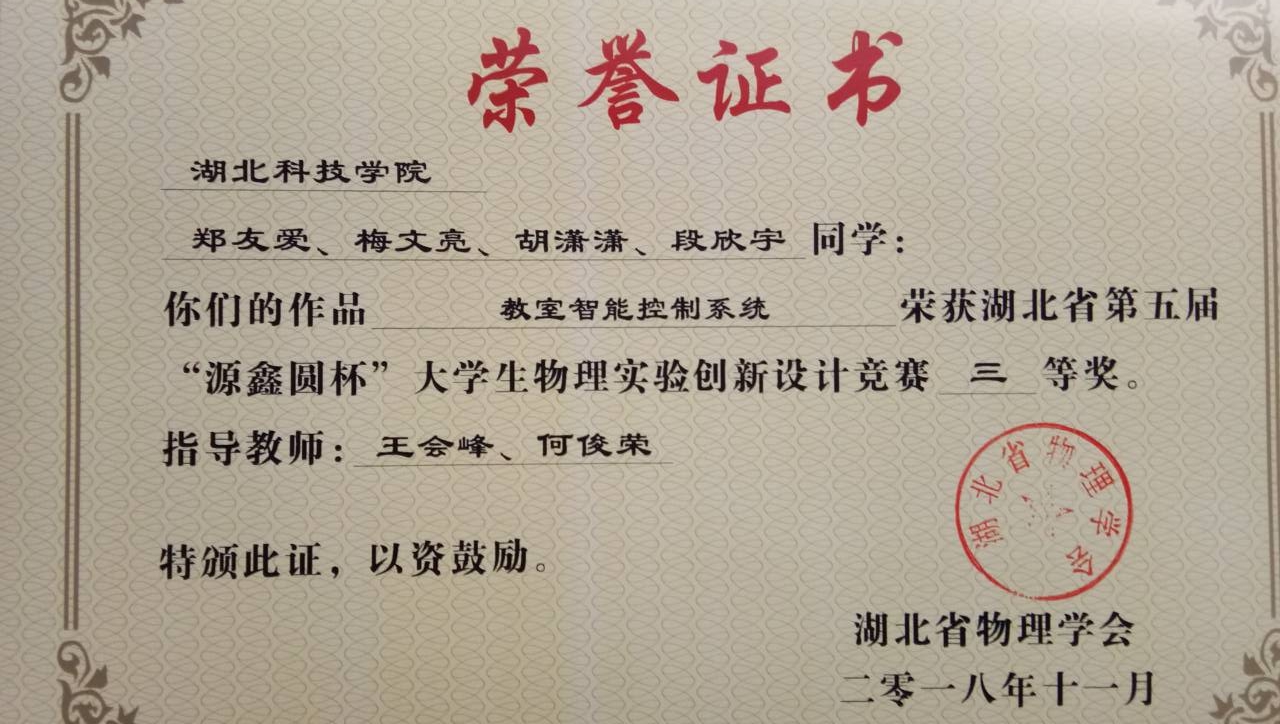 荣誉证书
湖北科技学院
郑友爱、梅文亮、胡潇潇、段欣宇 同学：
你们的作品 教室智能控制系统 荣获湖北省第五届
“源鑫圆杯”大学生物理实验创新设计竞赛 三 等奖。
指导教师：王会峰、何俊荣
特颁此证，以资鼓励。
湖北省物理学会
湖北省物理学会
二零一八年十一月